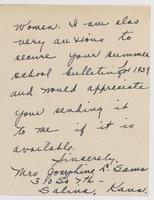 Women. I am also
very anxious to
secure your summer
school bulletin for 1939
and would appreciate
your sending it
to me if it is
available.
Sincerely,
Mrs Josephine R. Sams
310 So 7th -
Salina, Kans.